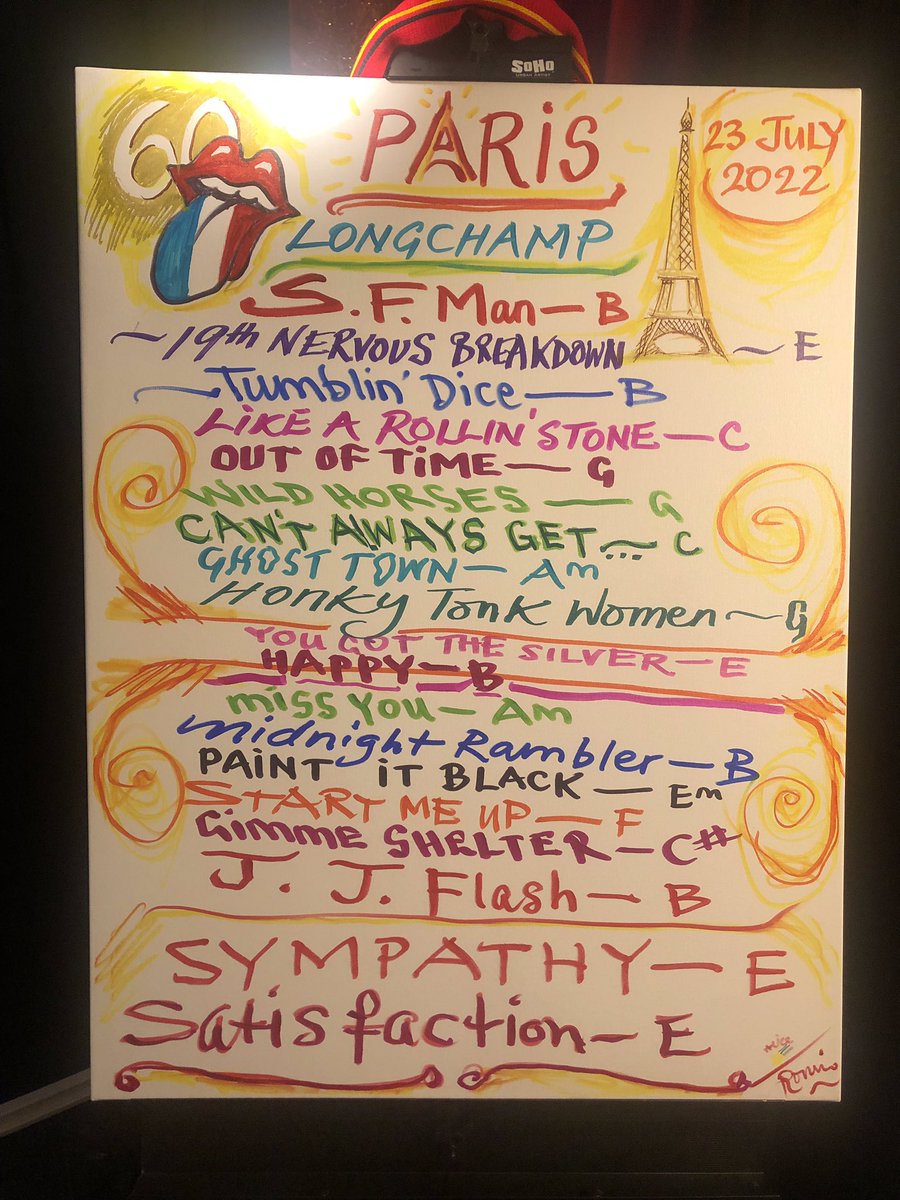 SoHo
URBAN ARTIST
60
PARiS
23 JULY
2022
LONGCHAMP
S.F. Man — B
~19th NERVOUS BREAKDOWN ~ E
~Tumblin' Dice — B
LiKE A ROLLiN' STONE — C
OUT OF TiME — G
WILD HORSES — G
CAN'T ALWAYS GET... ~ C
GHOST TOWN — Am
Honky Tonk Women ~ G
YOU GOT THE SILVER — E
HAPPY — B
miss YOU — Am
midnight Rambler — B
PAiNT iT BLACK — Em
START ME UP — F
GIMME SHELTER — C#
J. J. Flash — B
SYMPATHY — E
Satisfaction — E
Ronnie